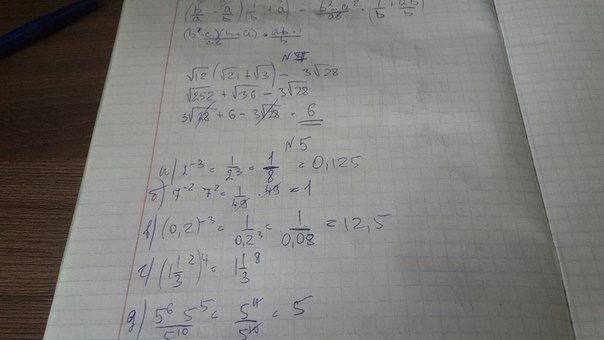 (b/a - a/b)(1/b + a) = b²-a²/ab · (1+ab/b)
(b-a)(b+a)/ab · ab+1/b
N
√12 (√21 + √3) - 3√28
√252 + √36 - 3√28
3√28 + 6 - 3√28 = 6
N5
а) 2⁻³ = 1/2³ = 1/8 = 0,125
б) 7⁻² 7² = 1/49 · 49 = 1
в) (0,2)⁻³ = 1/0,2³ = 1/0,08 = 12,5
г) (1 1/3 ²)⁴ = 1 1/3 ⁸
д) 5⁶ 5⁵/5¹⁰ = 5¹¹/5¹⁰ = 5